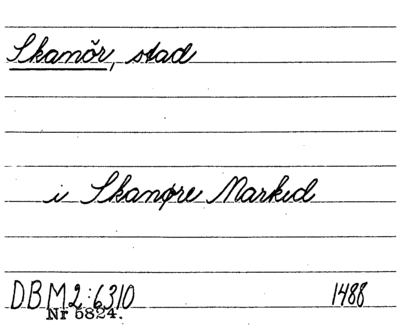 Skanör, stad
i Skanøre Markid
DBM2:6310 1488
Nr 5824.